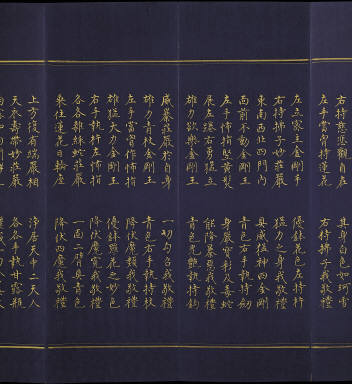 右持慈悲觀自在 其身白色如珂雪
左手當胸持蓮花 右持拂子我敬禮
左立家主金剛手 優鉢羅花色左持杵
右持拂子妙莊嚴 猛力之身我敬禮
東南西北四門內 具威猛神四金剛
西前不動金剛王 青色右手執持劍
左手怖指堅黃髮 身嚴寶利及毒蛇
展左捲右勇猛立 能除暴惡我敬禮
雄力欲樂金剛王 青色赤艷執持鈎
威嚴莊嚴於自身 一切勾召我敬禮
雄力青杖金剛王 青色右手執持杖
左手當胸作怖指 降伏魔類我敬禮
雄猛大力金剛王 優鉢羅花之妙色
右手執杵左怖指 降伏魔冤我敬禮
各各雜絲蛇莊嚴 一面二臂具青色
乘住蓮花日輪座 降伏四魔我敬禮
上方復有端嚴相 淨居天中二天人
天衣壽帶妙莊嚴 各各手執甘露瓶